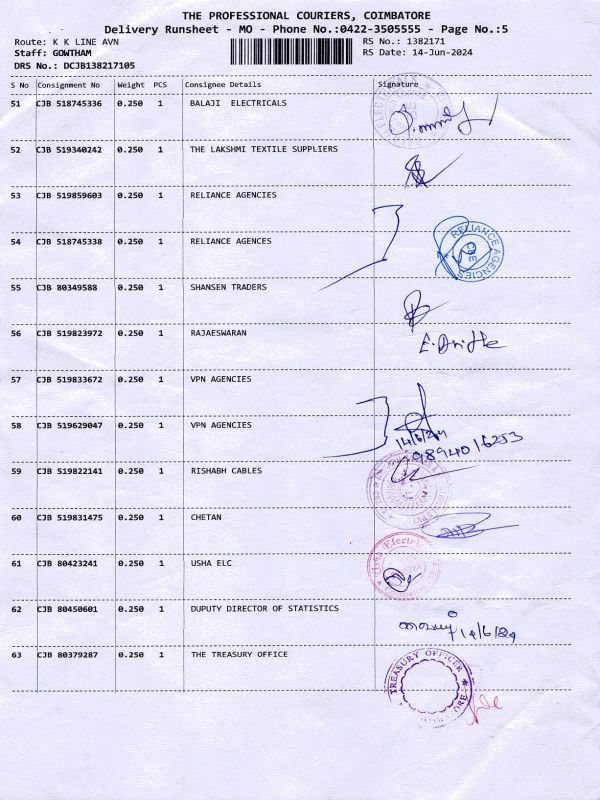 THE PROFESSIONAL COURIERS, COIMBATORE
Delivery Runsheet - MO - Phone No.:0422-3505555 - Page No.:5
Route: K K LINE AVN RS No.: 1382171
Staff: GOWTHAM RS Date: 14-Jun-2024
DRS No.: DCJB138217105
S No Consignment No Weight PCS Consignee Details Signature
51 CJB 518745336 0.250 1 BALAJI ELECTRICALS
52 CJB 519340242 0.250 1 THE LAKSHMI TEXTILE SUPPLIERS
53 CJB 519859603 0.250 1 RELIANCE AGENCIES
54 CJB 518745338 0.250 1 RELIANCE AGENCES
RELIANCE AGENCIES
CBE
55 CJB 80349588 0.250 1 SHANSEN TRADERS
56 CJB 519823972 0.250 1 RAJAESWARAN
57 CJB 519833672 0.250 1 VPN AGENCIES
58 CJB 519629047 0.250 1 VPN AGENCIES
14/6/24
9894016253
59 CJB 519822141 0.250 1 RISHABH CABLES
60 CJB 519831475 0.250 1 CHETAN
61 CJB 80423241 0.250 1 USHA ELC
62 CJB 80450601 0.250 1 DUPUTY DIRECTOR OF STATISTICS
14/6/24
63 CJB 80379287 0.250 1 THE TREASURY OFFICE
TREASURY OFFICER